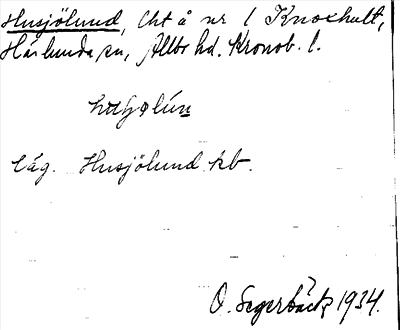 Husjölund, lht å nr 1 Knoxhult,
Härlunda sn, Allbo hd. Kronob. l.
låg. Husjölund kb.
O. Segerbäck 1934.